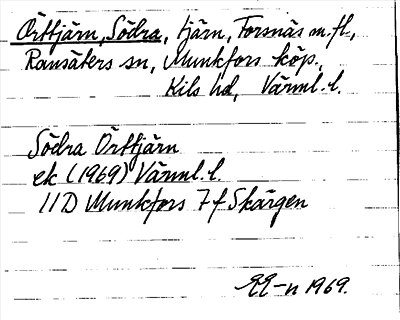 Örttjärn, Södra, tjärn, Torsnäs m.fl.,
Ransäters sn, Munkfors köp.,
Kils hd, Värml. l.
Södra Örttjärn
ek (1969) Värml. l.
11D Munkfors 7f Skärgen
EE-n 1969.